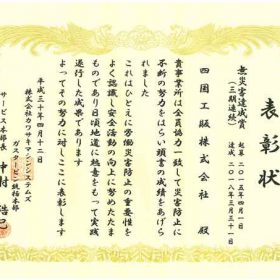 表彰状
無災害達成賞
(三期連続)
起算 二〇一五年四月一日
達成 二〇一八年三月三十一日
四国工販株式会社 殿
貴事業所は全員協力一致して災害防止に
不断の努力をはらい頭書の成績をあげら
れました
これはひとえに労働災害防止の重要性を
よく認識し安全活動の向上に努めたたま
ものであり日頃地道に熱意をもって実践
遂行した成果であります
よってその努力に対しここに表彰します
平成三十年四月十二日
株式会社カワサキマシンシステムズ
ガスタービン統括本部
サービス本部長 中村